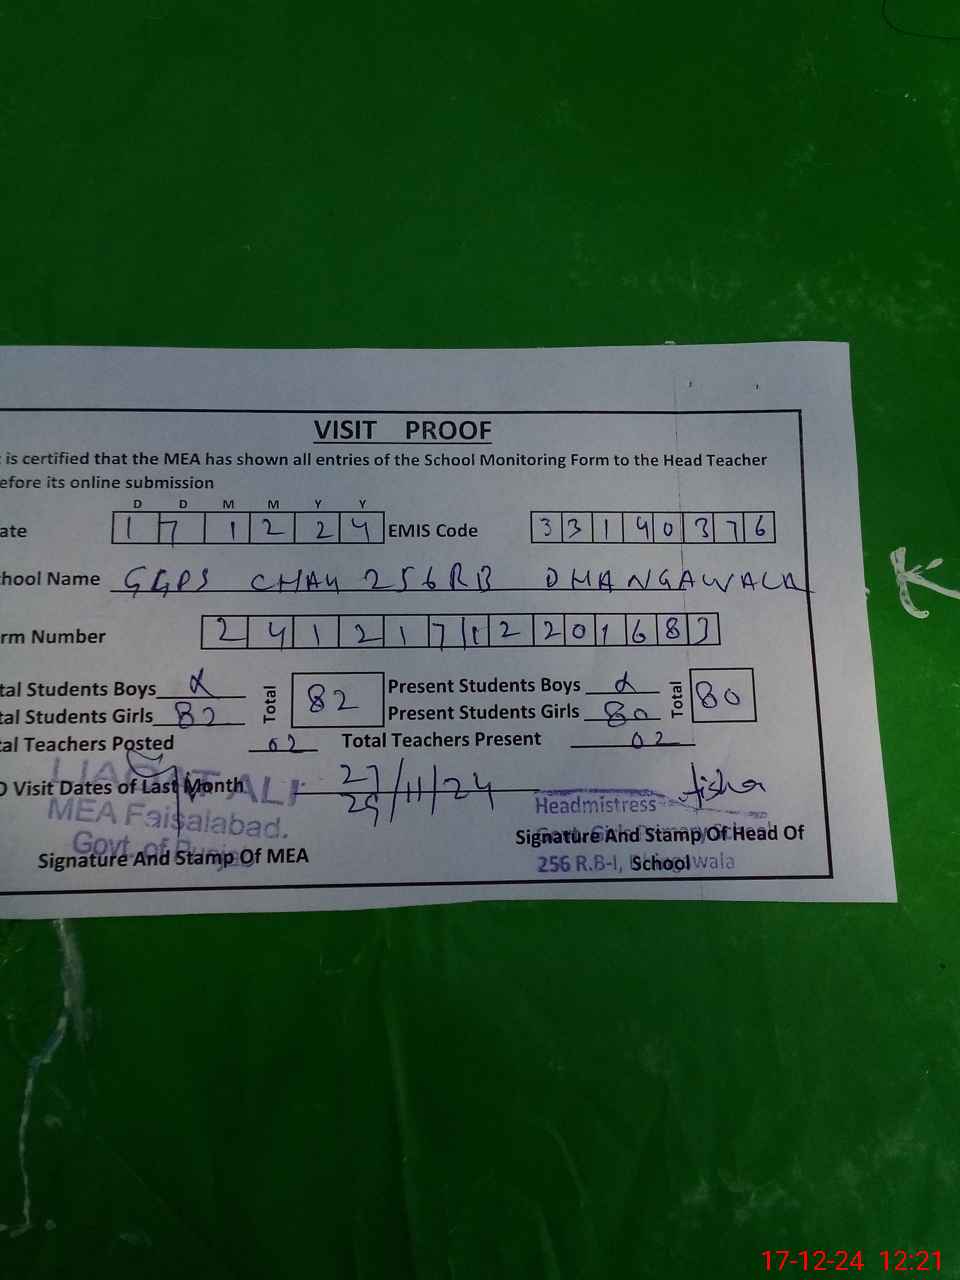 VISIT PROOF
is certified that the MEA has shown all entries of the School Monitoring Form to the Head Teacher
efore its online submission
D D M M Y Y
ate 1 7 1 2 2 4 EMIS Code 3 3 1 9 0 3 7 6
hool Name GGPS CHAK 256RB DHANGAWALA
rm Number 2 4 1 2 1 7 1 2 2 0 1 6 8 3
tal Students Boys Total 82 Present Students Boys Total 80
tal Students Girls 82 Present Students Girls 80
al Teachers Posted 02 Total Teachers Present 02
D Visit Dates of Last Month 27/29/11/24 Aisha
LIAQAT ALI
MEA Faisalabad.
Govt. of
Signature And Stamp Of MEA
Headmistress
Signature And Stamp Of Head Of
256 R.B-I, School wala
17-12-24 12:21